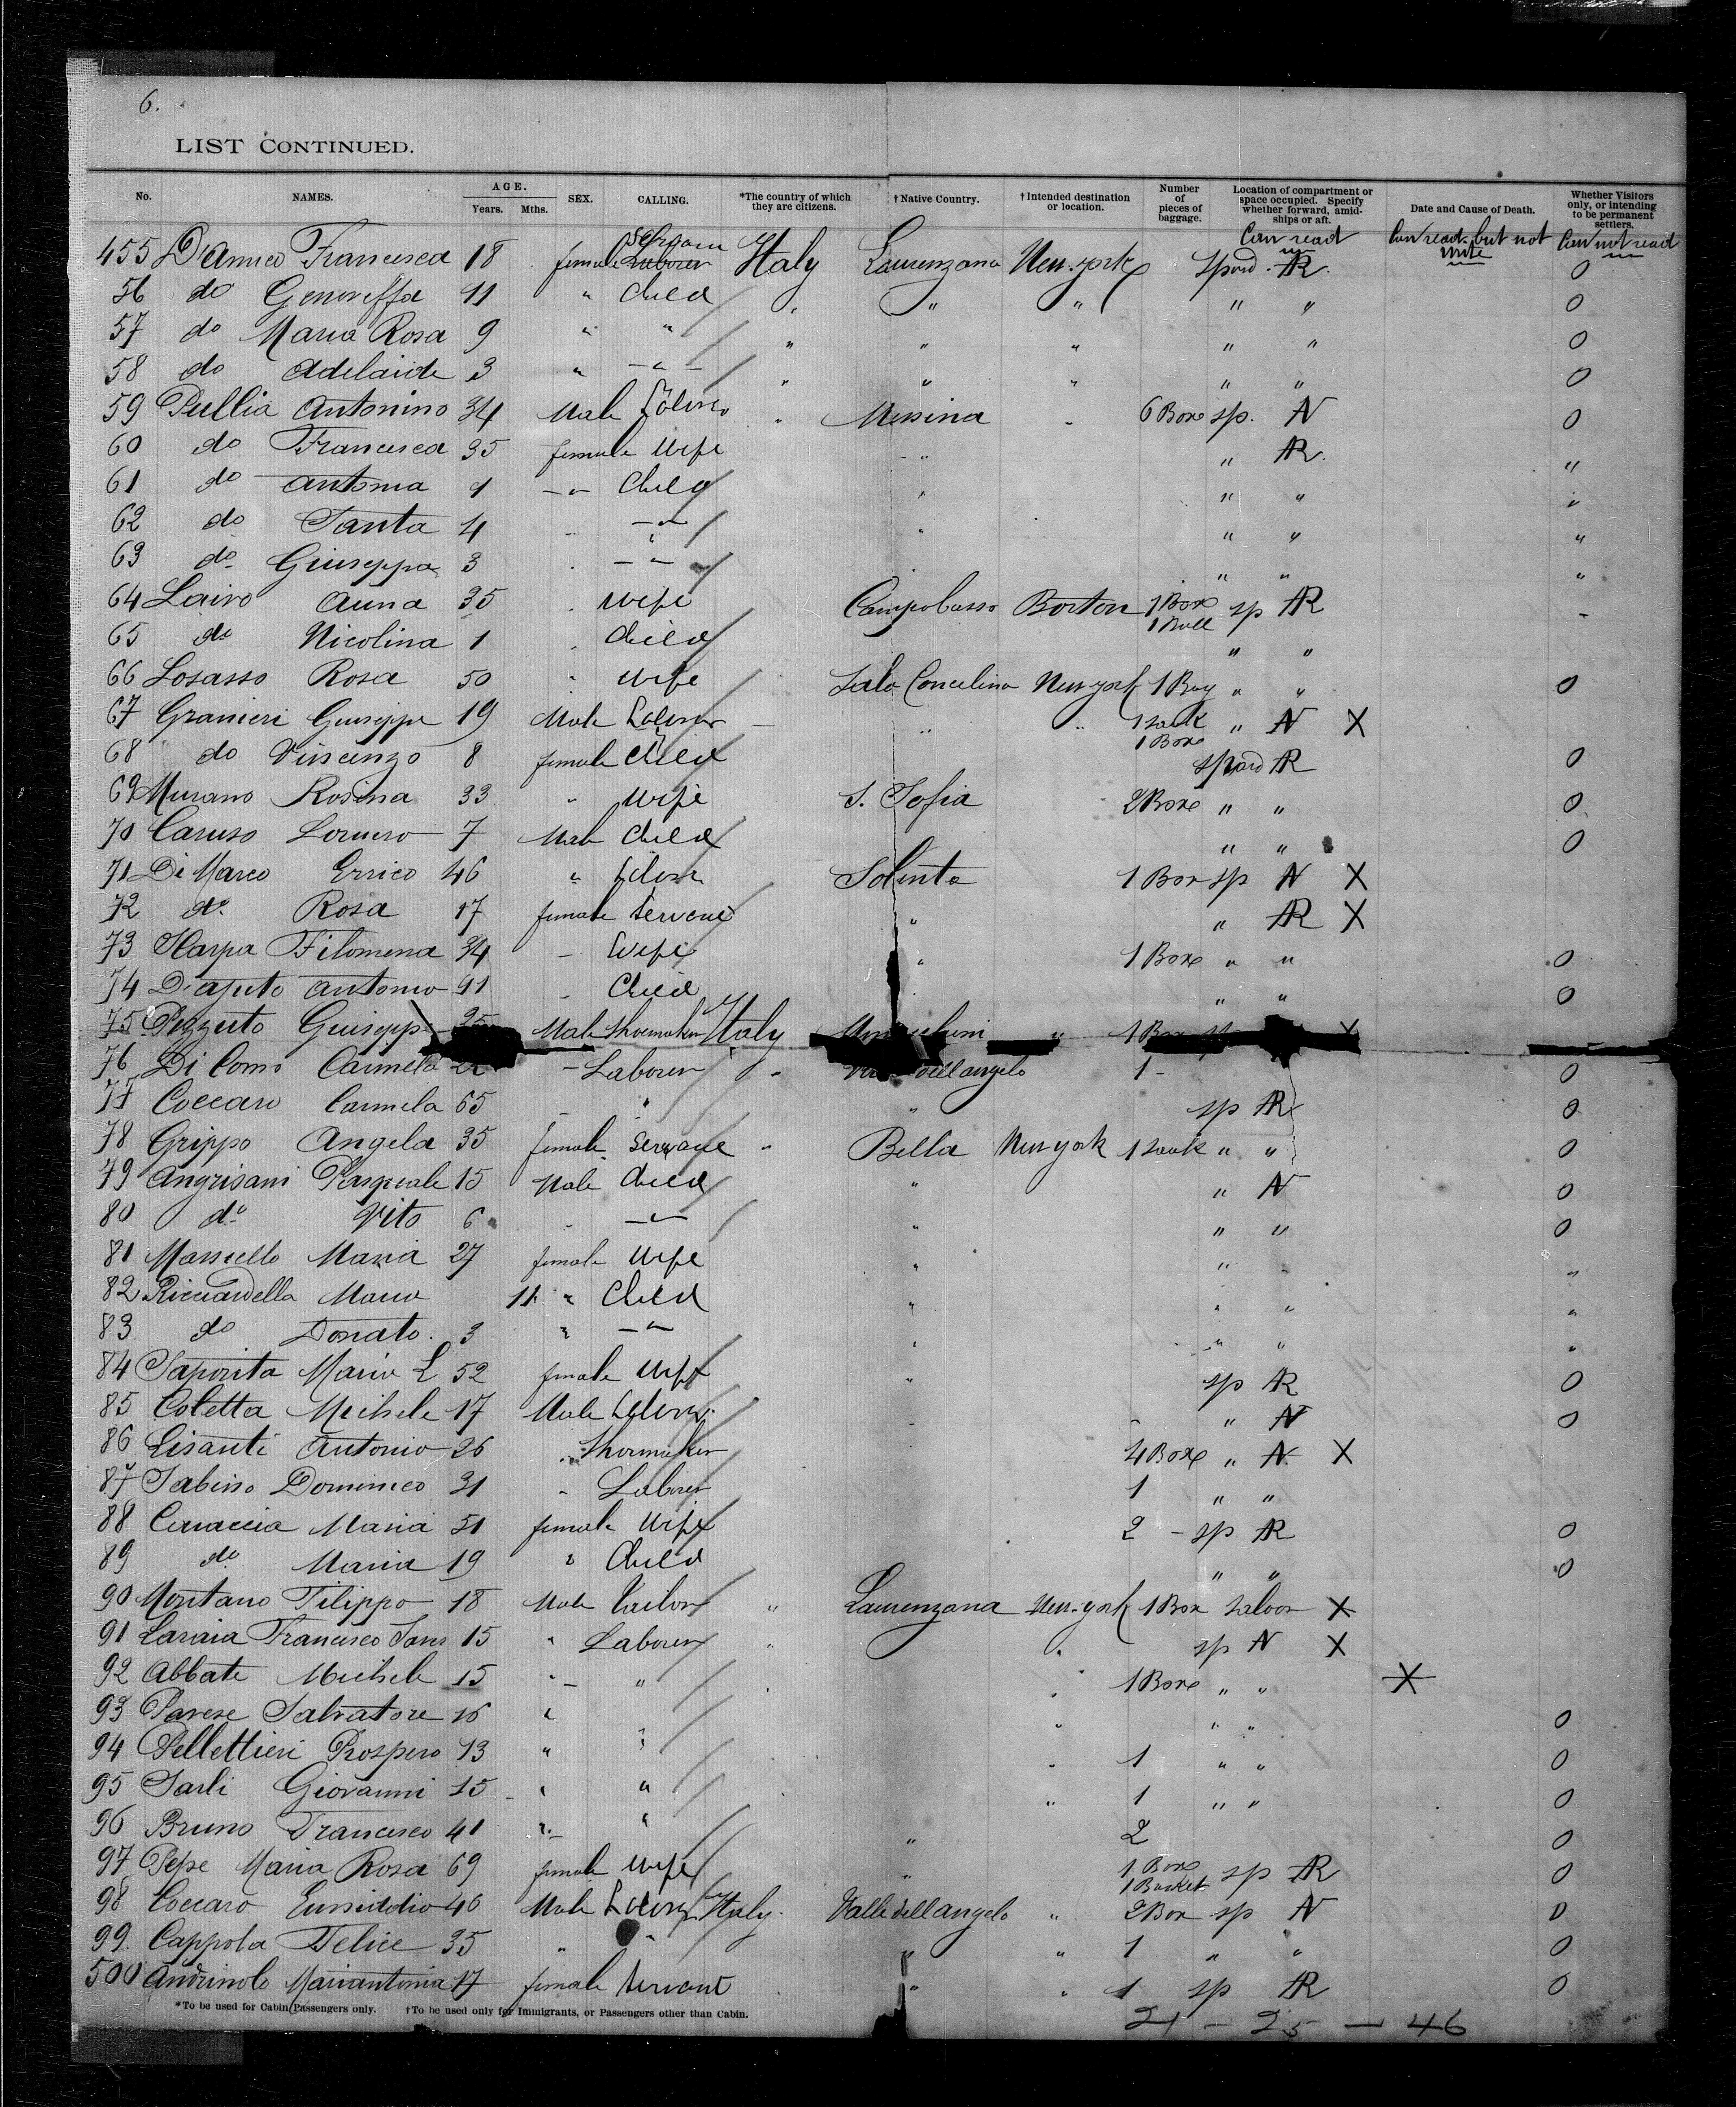 6.
LIST CONTINUED.
No. NAMES. AGE. Years. Mths. SEX. CALLING. *The country of which they are citizens. †Native Country. †Intended destination or location. Number of pieces of baggage. Location of compartment or space occupied. Specify whether forward, amidships or aft. Date and Cause of Death. Whether Visitors only, or intending to be permanent settlers.
Can read Can read but not write Can not read
455 D'Amico Francesca 18 female Laborer Italy Laurenzana New-york AR O
56 do Genoveffa 11 " Child " " " " " O
57 do Maria Rosa 9 " " " " " " " O
58 do Adelaide 3 " -"- " " " " " O
59 Pullia Antonino 34 Male " Messina " 6 Boxe sp. N O
60 do Francesca 35 female Wife " " AR "
61 do Antonia 9 -"- Child " " " "
62 do Santa 4 " -"- " " " "
63 do Giuseppa 3 " -"- " " "
64 Lairo Anna 35 " Wife Campobasso Boston 1 Box sp AR "
65 do Nicolina 1 " Child " "
66 Losasso Rosa 50 " Wife New york 1 Bag " " O
67 Granieri Giuseppe 19 Male Laborer " " 1 sack 1 Boxe " N X
68 do Vincenzo 8 female Child AR O
69 Murano Rosina 33 " Wife S. Sofia 2 Boxe " " O
70 Caruso 7 Male Child " " O
71 Di Marco Errico 46 " 1 Box sp N X
72 do Rosa 17 female Servant " " AR X
73 Filomena 34 - Wife " 1 Boxe " " O
74 Antonio 11 " Child " " O
75 Pezzuto Giusepp Male Shoemaker Italy " 1 X
76 Di Como Carmela - Laborer " dell angelo 1 - O
77 Coccaro Carmela 65 - " " sp AR O
78 Grippo Angela 35 female Servant " Bella New york 1 sack " " O
79 Angrisani Pasquale 15 Male Child " " N O
80 do Vito 6 " -"- " " " O
81 Masiello Maria 27 female Wife " " - "
82 Ricciardella Maria 11 " Child " " " "
83 do Donato. 3 " -"- " " " "
84 Saporita Maria L 52 female Wife " sp AR O
85 Coletta Michele 17 Male " N O
86 Lisanti Antonio 26 " Shoemaker 4 Boxe " N X
87 Sabino Dominico 31 " Laborer 1 " "
88 Maria 51 female Wife 2 - sp AR O
89 do Maria 19 " Child " " O
90 Montano Filippo 18 Male Tailor " Laurenzana New-york 1 Box saloon X
91 Laraia Francesco 15 " Laborer " " sp N X
92 Abbate Michele 15 "- " " " 1 Boxe " " X
93 Pavese Salvatore 16 " " " " O
94 Pellettieri Prospero 13 " " " 1 " " O
95 Sarli Giovanni 15 " " " 1 " " O
96 Bruno Francesco 41 " " " 2 O
97 Pepe Maria Rosa 69 female Wife " 1 Boxe 1 Basket sp AR O
98 Coccaro 40 Male Laborer Italy. Valle dell angelo " 2 Box sp N O
99. Cappola Felice 35 " " " " 1 " " O
500 Andrinolo Mariantonia 17 female Servant " " 1 sp AR O
*To be used for Cabin Passengers only. †To be used only for Immigrants, or Passengers other than Cabin.
21 - 25 - 46